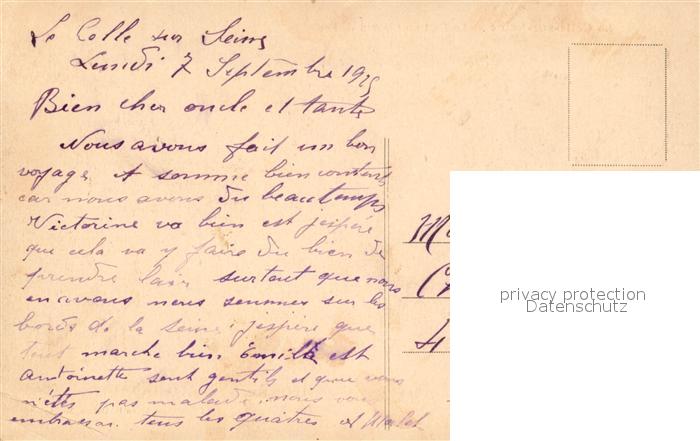 La Celle sur Seine
Lundi 7 Septembre 1925
Bien cher oncle et tante
Nous avons fait un bon
voyage, et somme bien contents
car nous avons du beau temps
Victorine va bien est j'espère
que cela va y faire du bien de
prendre l'air surtout que nous
en avons nous sommes sur les
bords de la seine, j'espère que
tout marche bien Emile est
antoinette sont gentils et que vous
n'êtes pas malade. nous vous
embrasson. tous les quatres et
privacy protection
Datenschutz